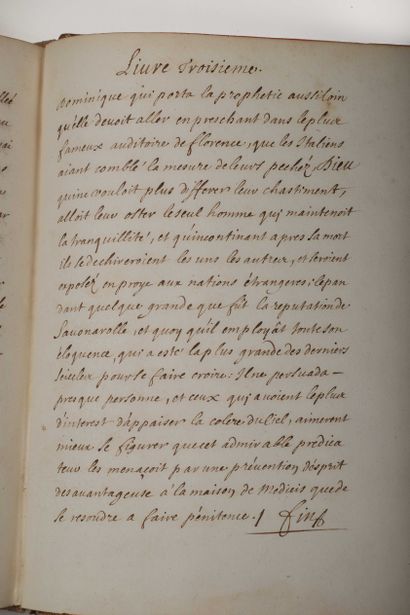 Livre Troisieme.
Dominique qui porta la prophetie aussi loin
qu'elle devoit aller en preschant dans le plus
fameux auditoire de florence, que les Italiens
aiant comblé la mesure de leurs pechez Dieu
qui ne vouloit plus differer leur chastiment,
alloit leur oster le seul homme qui maintenoit
la tranquillité, et qu'incontinant apres sa mort
ils se dechireroient les uns les autres, et seroient
exposez en proye aux nations étrangeres; cepan
dant quelque grande que fut la reputation de
Savonarolle, et quoy qu'il employât toute son
éloquence, qui a esté la plus grande des derniers
siecles pour se faire croire: Il ne persuada
presque personne, et ceux qui avoient le plus
d'interest d'appaiser la colere du Ciel, aimerent
mieux se figurer que cet admirable prédica
teur les menaçoit par une prévention d'ésprit
desavantageuse à la maison de Medicis que de
se resoudre a faire pénitence. / fin